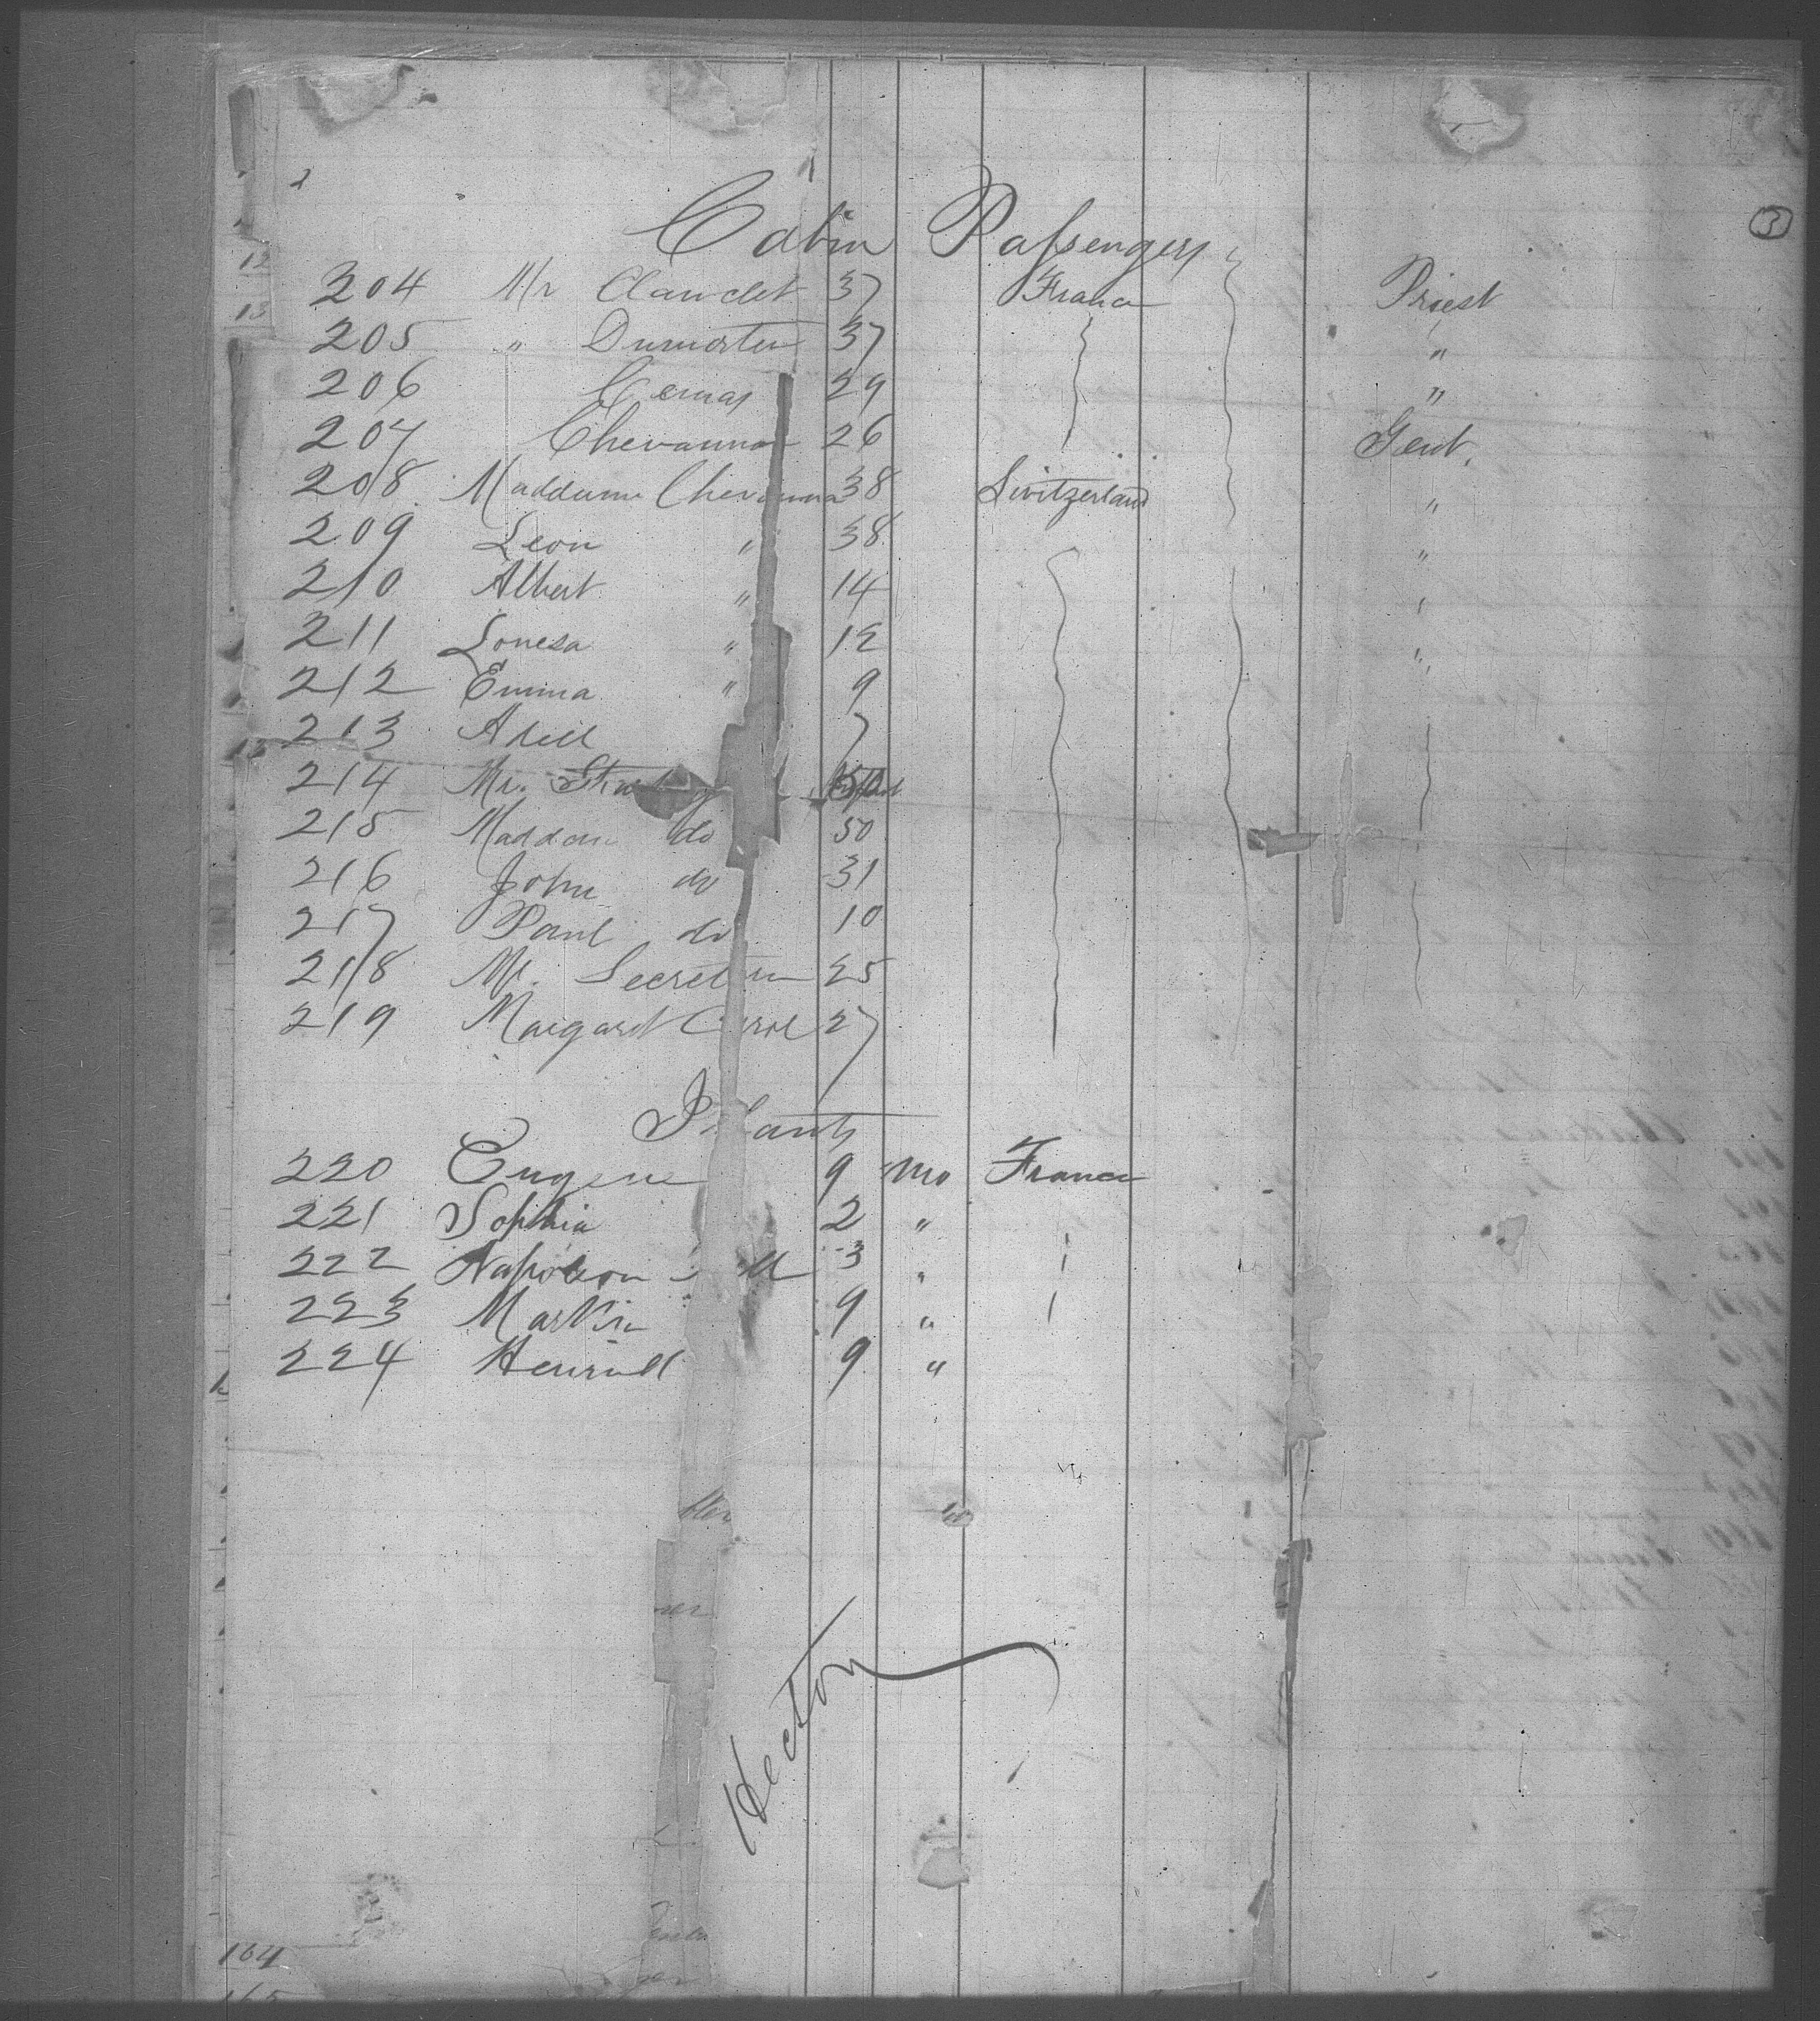 3
Cabin Passengers
204 Mr Claudet 37 France Priest
205 " Dumortier 37 "
206 " 29 "
207 Chevannes 26 Gent.
208 Maddame 38 Switzerland "
209 Leon " 38 "
210 Albert " 14 "
211 Louesa " 12 "
212 Emma " 9
213 Adell 7
214 Mr.
215 Maddam do 50
216 John do 31
217 Paul do 10
218 Mr. Secretan 25
219 Margaret 27
220 Eugene 9 Mo France
221 Sophia 2 "
222 Napoleon 3 "
223 Martin 9 "
224 9 "
Hector
164
165